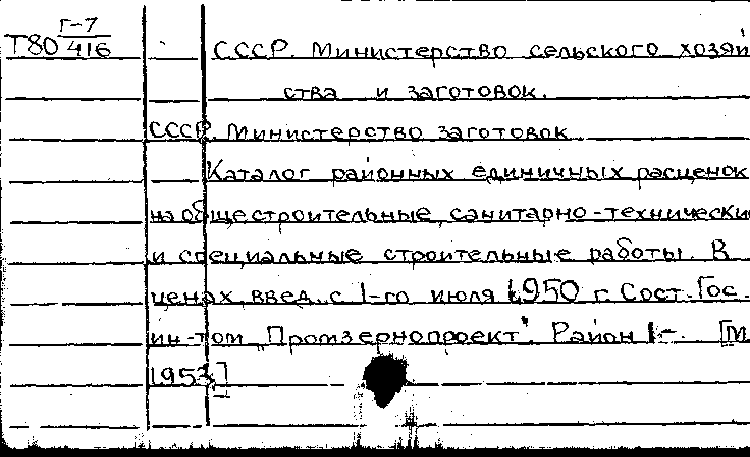 Г-7
Т80 416
СССР. Министерство сельского хозяй
ства и заготовок.
СССР. Министерство заготовок
Каталог районных единичных расценок
на общестроительные, санитарно-технически
и специальные строительные работы. В
ценах введ. с 1-го июля 1950 г. Сост. Гос.
ин-том „Промзернопроект". Район 1-. [М
1953]